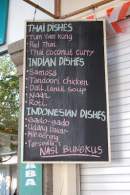 THAI DISHES
Tum Yam Kung
Pad Thai
Thai Coconut Curry
INDIAN DISHES
Samosa
Tandoori Chicken
Dall, Lentil Soup
Naan
Roti
INDONESIAN DISHES
Gado-gado
Udang
Mie goreng
NASI BUNGKUS
BA